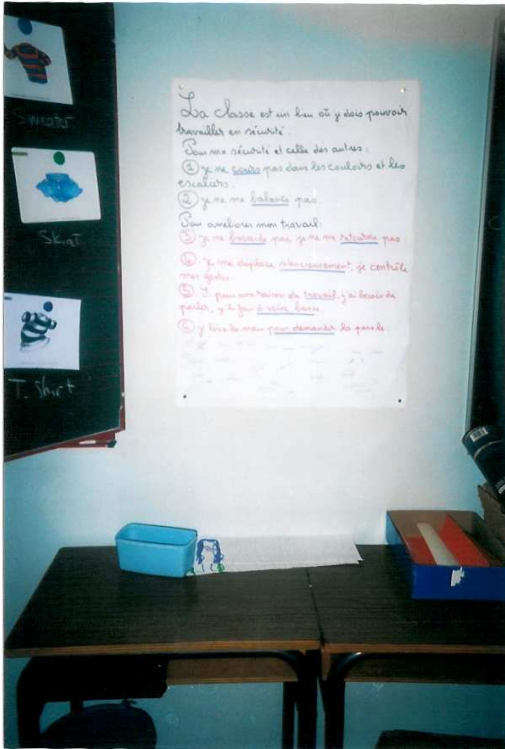 Sweater
Skirt
T. Shirt
La classe est un lieu où je dois pouvoir
travailler en sécurité.
Pour ma sécurité et celle des autres:
① je ne cours pas dans les couloirs et les
escaliers.
② je ne me balance pas.
Pour améliorer mon travail:
③ je ne bavarde pas, je ne me retourne pas
④ je me déplace silencieusement, je contrôle
mes gestes.
⑤ Si pour une raison de travail, j'ai besoin de
parler, je le fais à voix basse.
⑥ je lève la main pour demander la parole.